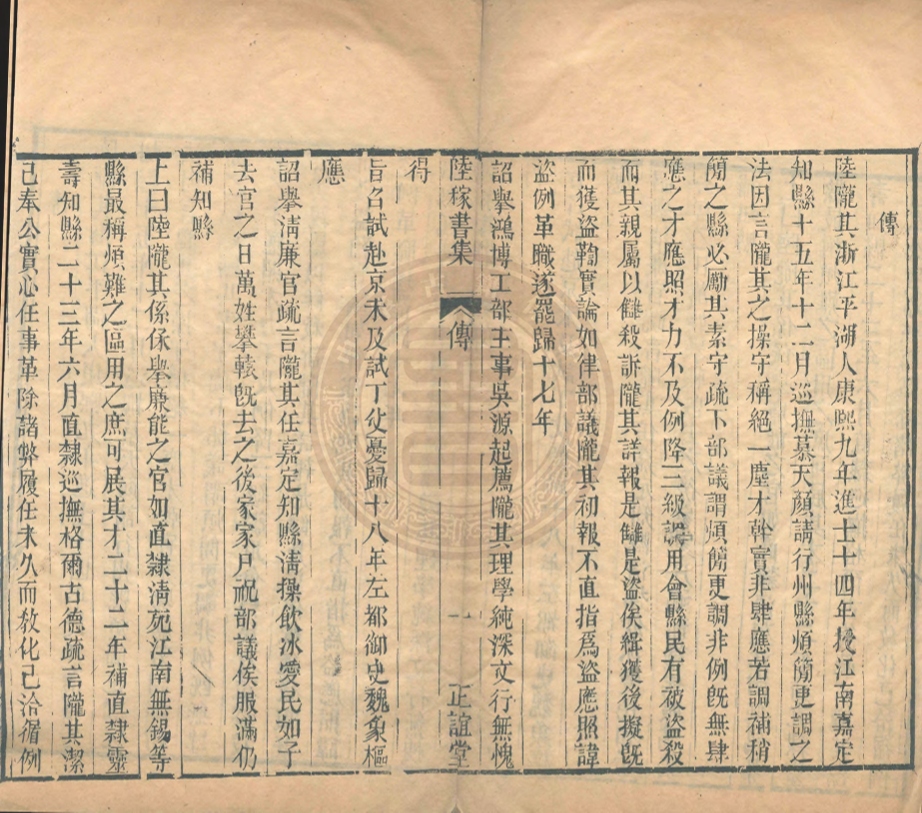 傳
陸隴其浙江平湖人康熙九年進士十四年授江南嘉定
知縣十五年十二月巡撫慕天顏請行州縣煩簡更調之
法因言隴其之操守稱絕一塵才幹實非肆應若調補稍
簡之縣必勵其素守疏下部議謂煩簡更調非例旣無肆
應之才應照才力不及例降三級調用會縣民有被盜殺
而其親屬以讎殺訴隴其詳報是讎是盜俟緝獲後擬旣
而獲盜鞫實論如律部議隴其初報不直指爲盜應照諱
盜例革職遂罷歸十七年
詔舉鴻博工部主事吳源起薦隴其理學純深文行無愧
陸稼書集 傳 一 正誼堂
得
旨召試赴京未及試丁父憂歸十八年左都御史魏象樞
應
詔舉淸廉官疏言隴其任嘉定知縣淸操飲冰愛民如子
去官之日萬姓攀轅旣去之後家家尸祝部議俟服滿仍
補知縣
上曰陸隴其係保舉廉能之官如直隸淸苑江南無錫等
縣最稱煩難之區用之庶可展其才二十二年補直隸靈
壽知縣二十三年六月直隸巡撫格爾古德疏言隴其潔
己奉公實心任事革除諸弊履任未久而敎化已洽循例